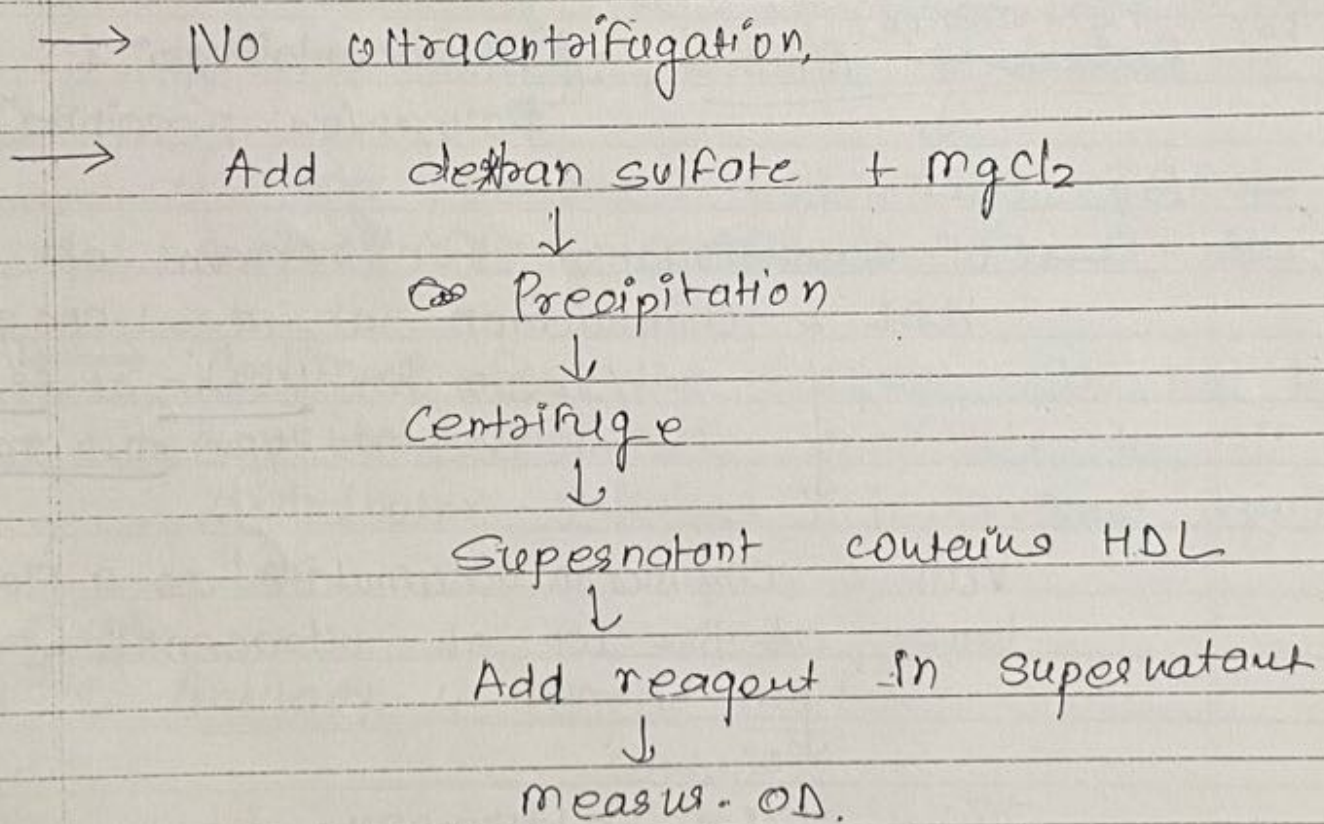 → No ultracentrifugation,
→ Add dextran sulfate + MgCl2
↓
Precipitation
↓
Centrifuge
↓
Supernatant contains HDL
↓
Add reagent in supernatant
↓
Measur. OD.